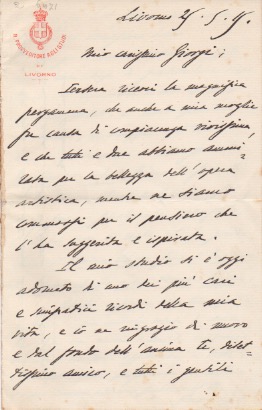 R. PROVVEDITORE AGLI STUDI
LIVORNO
Livorno 25.5.15.
Mio carissimo Giorgi;
Iersera ricevei la magnifica
pergamena, che anche a mia moglie
fu causa di compiacenza vivissima,
e che tutti e due abbiamo ammi-
rata per la bellezza dell'opera
artistica, mentre ne siamo
commossi per il pensiero che
l'ha suggerita e ispirata.
Il mio studio si è oggi
adornato di uno dei più cari
e simpatici ricordi della mia
vita, e io ne ringrazio di nuovo
e dal fondo dell'anima te, dilet-
tissimo amico, e tutti i gentili